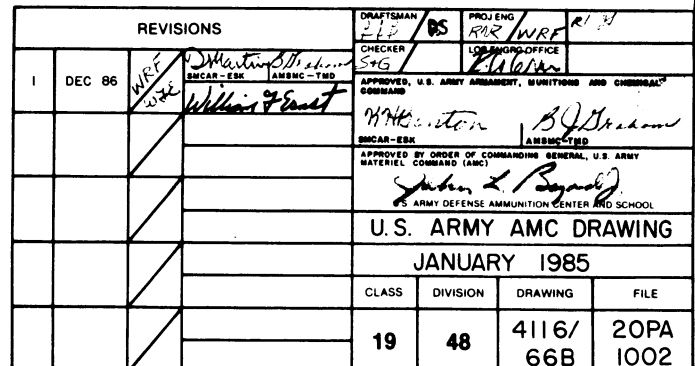 REVISIONS
1 DEC 86 WRF
D Martin BJ Graham
SMCAR-ESK AMSMC-TMD
William F Ernst
DRAFTSMAN DS
PROJ ENG RNR/WRF
CHECKER S+G
LOG ENGRG OFFICE
APPROVED, U.S. ARMY ARMAMENT, MUNITIONS AND CHEMICAL
COMMAND
BJ Graham
SMCAR-ESK AMSMC-TMD
APPROVED BY ORDER OF COMMANDING GENERAL, U.S. ARMY
MATERIEL COMMAND (AMC)
U S ARMY DEFENSE AMMUNITION CENTER AND SCHOOL
U.S. ARMY AMC DRAWING
JANUARY 1985
CLASS DIVISION DRAWING FILE
19 48 4116/ 20PA
66B 1002